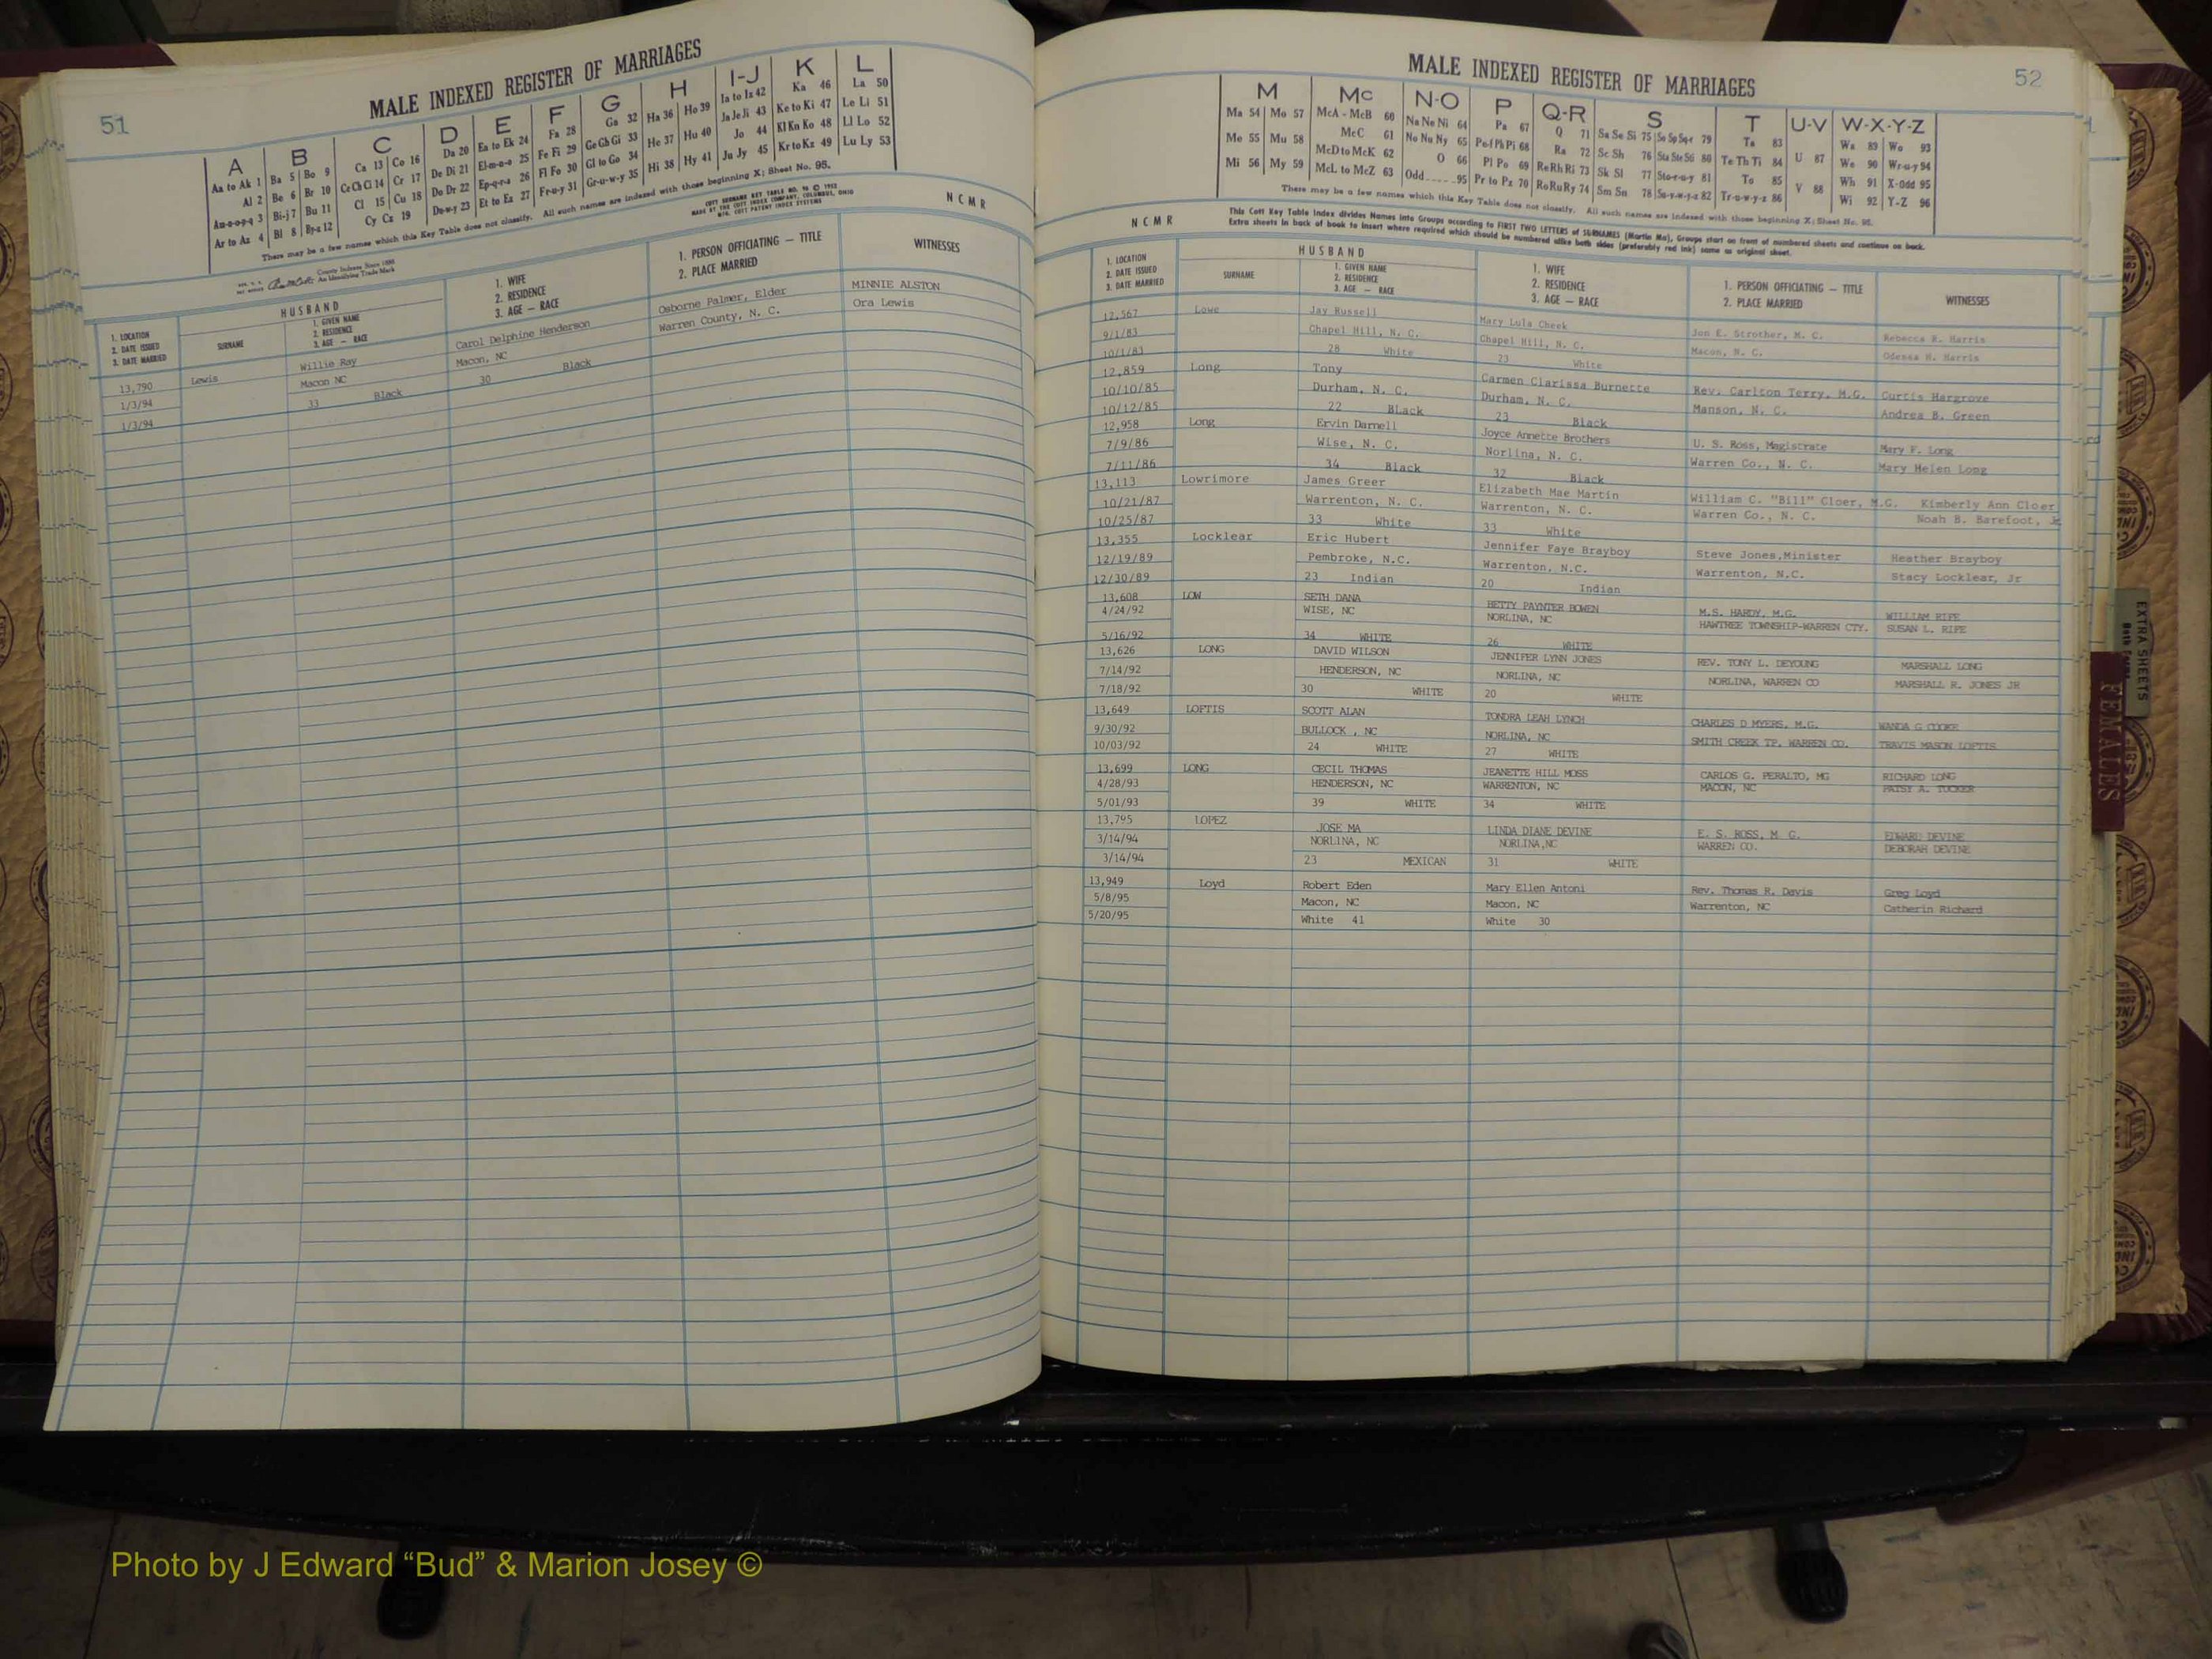 51
MALE INDEXED REGISTER OF MARRIAGES
A B C D E F G H I-J K L
Aa to Ak 1 Ba 5 Bo 9 Ca 13 Co 16 Da 20 Ea to Ek 24 Fa 28 Ga 32 Ha 36 Ho 39 Ia to Iz 42 Ka 46 La 50
Al 2 Be 6 Br 10 Ce Ch Ci 14 Cr 17 De Di 21 El-m-n-o 25 Fe Fi 29 Ge Gh Gi 33 He 37 Hu 40 Ja Je Ji 43 Ke to Ki 47 Le Li 51
Am-n-o-p-q 3 Bi-j 7 Bu 11 Cl 15 Cu 18 Do Dr 22 Ep-q-r-s 26 Fl Fo 30 Gl to Go 34 Hi 38 Hy 41 Jo 44 Kl Kn Ko 48 Ll Lo 52
Ar to Az 4 Bl 8 By-z 12 Cy Cz 19 Du-w-y 23 Et to Ez 27 Fr-u-y 31 Gr-u-w-y 35 Ju Jy 45 Kr to Kz 49 Lu Ly 53
There may be a few names which this Key Table does not classify. All such names are indexed with those beginning X; Sheet No. 95.
County Indexes Since 1888
An Identifying Trade Mark
COTT SURNAME KEY TABLE NO. 96 © 1952
MADE AT THE COTT INDEX COMPANY, COLUMBUS, OHIO
MFG. COTT PATENT INDEX SYSTEMS
NCMR
1. LOCATION
2. DATE ISSUED
3. DATE MARRIED
HUSBAND
SURNAME
1. GIVEN NAME
2. RESIDENCE
3. AGE — RACE
1. WIFE
2. RESIDENCE
3. AGE — RACE
1. PERSON OFFICIATING — TITLE
2. PLACE MARRIED
WITNESSES
13,790 Lewis Willie Ray Carol Delphine Henderson Osborne Palmer, Elder MINNIE ALSTON
1/3/94 Macon NC Macon, NC Warren County, N. C. Ora Lewis
1/3/94 33 Black 30 Black
52
MALE INDEXED REGISTER OF MARRIAGES
M Mc N-O P Q-R S T U-V W-X-Y-Z
Ma 54 Mo 57 McA - McB 60 Na Ne Ni 64 Pa 67 Q 71 Sa Se Si 75 So Sp Sq-r 79 Ta 83 Wa 89 Wo 93
Me 55 Mu 58 McC 61 No Nu Ny 65 Pe-f Ph Pi 68 Ra 72 Sc Sh 76 Sta Ste Sti 80 Te Th Ti 84 U 87 We 90 Wr-u-y 94
Mi 56 My 59 McD to McK 62 O 66 Pl Po 69 Re Rh Ri 73 Sk Sl 77 Sto-r-u-y 81 To 85 Wh 91 X-Odd 95
McL to McZ 63 Odd 95 Pr to Pz 70 Ro Ru Ry 74 Sm Sn 78 Su-v-w-y-z 82 Tr-u-w-y-z 86 V 88 Wi 92 Y-Z 96
There may be a few names which this Key Table does not classify. All such names are indexed with those beginning X; Sheet No. 95.
NCMR
This Cott Key Table Index divides Names into Groups according to FIRST TWO LETTERS of SURNAMES (Martin Ma), Groups start on front of numbered sheets and continue on back.
Extra sheets in back of book to insert where required which should be numbered alike both sides (preferably red ink) same as original sheet.
1. LOCATION
2. DATE ISSUED
3. DATE MARRIED
HUSBAND
SURNAME
1. GIVEN NAME
2. RESIDENCE
3. AGE — RACE
1. WIFE
2. RESIDENCE
3. AGE — RACE
1. PERSON OFFICIATING — TITLE
2. PLACE MARRIED
WITNESSES
12,567 Lowe Jay Russell Mary Lula Cheek Jon E. Strother, M. C. Rebecca R. Harris
9/1/83 Chapel Hill, N. C. Chapel Hill, N. C. Macon, N. C. Odessa H. Harris
10/1/83 28 White 23 White
12,859 Long Tony Carmen Clarissa Burnette Rev. Carlton Terry, M.G. Curtis Hargrove
10/10/85 Durham, N. C. Durham, N. C. Manson, N. C. Andrea B. Green
10/12/85 22 BLack 23 Black
12,958 Long Ervin Darnell Joyce Annette Brothers U. S. Ross, Magistrate Mary F. Long
7/9/86 Wise, N. C. Norlina, N. C. Warren Co., N. C. Mary Helen Long
7/11/86 34 Black 32 Black
13,113 Lowrimore James Greer Elizabeth Mae Martin William C. "Bill" Cloer, M.G. Kimberly Ann Cloer
10/21/87 Warrenton, N. C. Warrenton, N. C. Warren Co., N. C. Noah B. Barefoot, Jr
10/25/87 33 White 33 White
13,355 Locklear Eric Hubert Jennifer Faye Brayboy Steve Jones,Minister Heather Brayboy
12/19/89 Pembroke, N.C. Warrenton, N.C. Warrenton, N.C. Stacy Locklear, Jr
12/30/89 23 Indian 20 Indian
13,608 LOW SETH DANA BETTY PAYNTER BOWEN M.S. HARDY, M.G. WILLIAM RIPE
4/24/92 WISE, NC NORLINA, NC HAWTREE TOWNSHIP-WARREN CTY. SUSAN L. RIPE
5/16/92 34 WHITE 26 WHITE
13,626 LONG DAVID WILSON JENNIFER LYNN JONES REV. TONY L. DEYOUNG MARSHALL LONG
7/14/92 HENDERSON, NC NORLINA, NC NORLINA, WARREN CO MARSHALL R. JONES JR
7/18/92 30 WHITE 20 WHITE
13,649 LOFTIS SCOTT ALAN TONDRA LEAH LYNCH CHARLES D MYERS, M.G. WANDA G COOKE
9/30/92 BULLOCK , NC NORLINA, NC SMITH CREEK TP. WARREN CO. TRAVIS MASON LOFTIS
10/03/92 24 WHITE 27 WHITE
13,699 LONG CECIL THOMAS JEANETTE HILL MOSS CARLOS G. PERALTO, MG RICHARD LONG
4/28/93 HENDERSON, NC WARRENTON, NC MACON, NC PATSY A. TUCKER
5/01/93 39 WHITE 34 WHITE
13,795 LOPEZ JOSE MA LINDA DIANE DEVINE E. S. ROSS, M. G. EDWARD DEVINE
3/14/94 NORLINA, NC NORLINA,NC WARREN CO. DEBORAH DEVINE
3/14/94 23 MEXICAN 31 WHITE
13,949 Loyd Robert Eden Mary Ellen Antoni Rev. Thomas R. Davis Greg Loyd
5/8/95 Macon, NC Macon, NC Warrenton, NC Catherin Richard
5/20/95 White 41 White 30
EXTRA SHEETS
FEMALES
Photo by J Edward “Bud” & Marion Josey ©